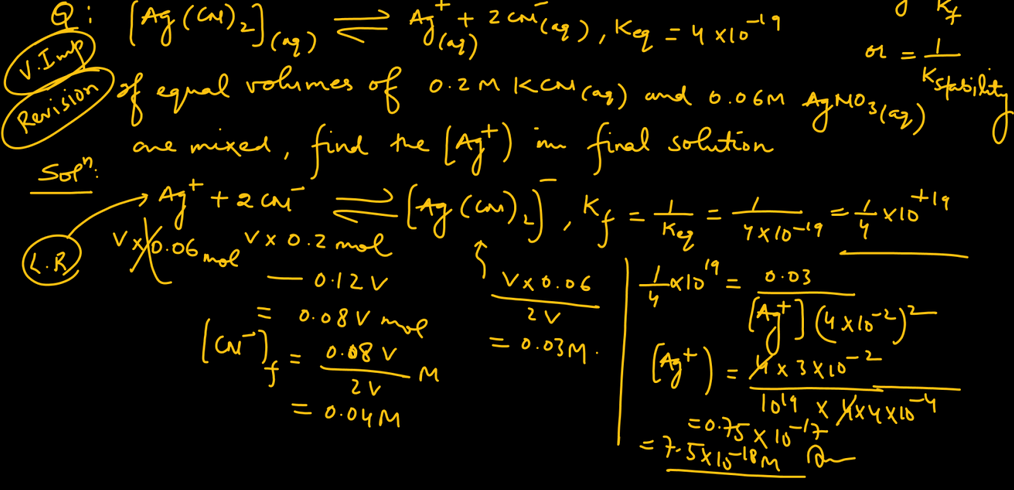 Q: [Ag(CN)2](aq) ⇌ Ag+(aq) + 2CN-(aq), Keq = 4 x 10^-19
Kf
or = 1/Kstability
V. Imp
Revision
If equal volumes of 0.2M KCN(aq) and 0.06M AgNO3(aq)
are mixed, find the [Ag+] in final solution
Sol^n:
Ag+ + 2CN- ⇌ [Ag(CN)2]-, Kf = 1/Keq = 1/(4x10^-19) = 1/4 x 10^+19
L.R
Vx0.06 mol Vx0.2 mol
- 0.12V
= 0.08V mol
[CN-]f = 0.08V/2V M
= 0.04M
Vx0.06/2V
= 0.03M.
1/4 x 10^19 = 0.03/([Ag+](4x10^-2)^2)
[Ag+] = 4x3x10^-2/(10^19 x 4x4x10^-4)
= 0.75 x 10^-17
= 7.5x10^-18 M